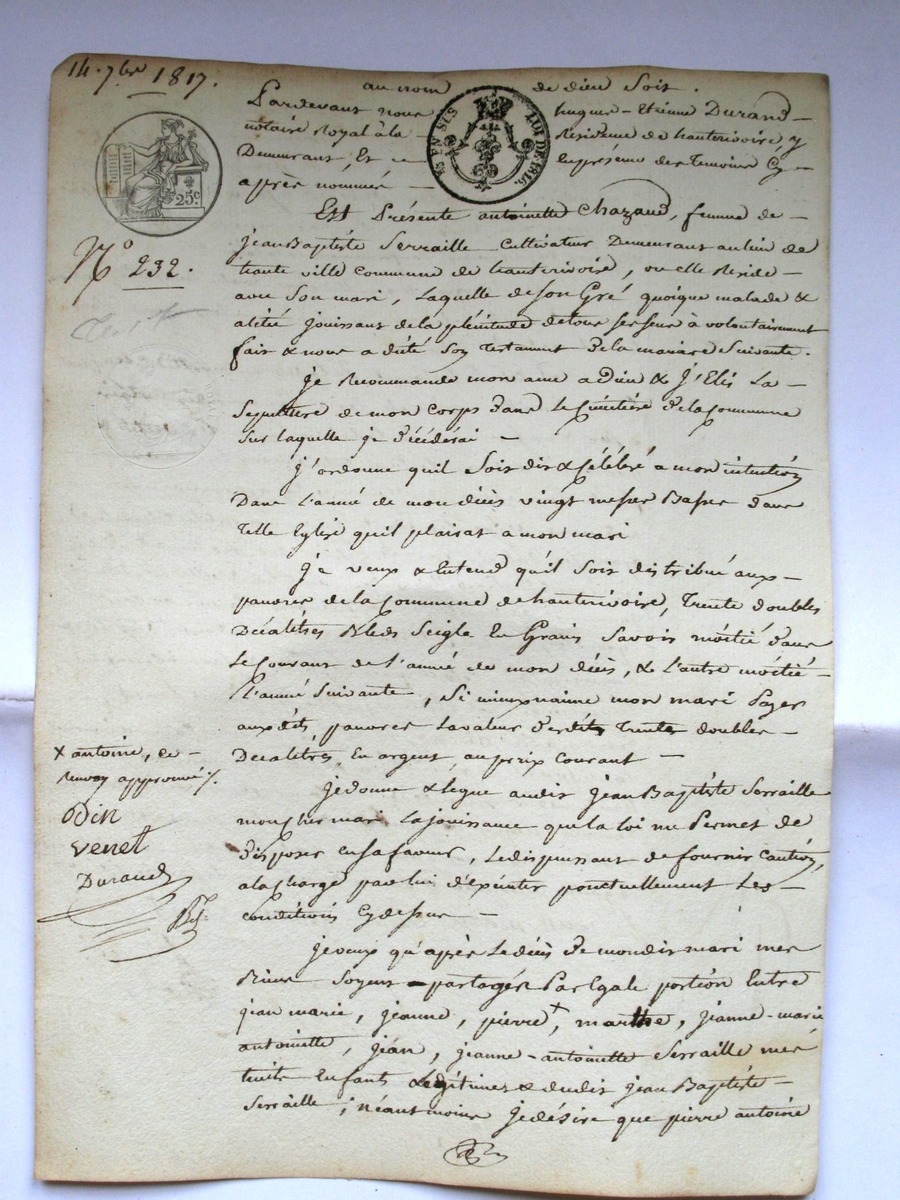 14. 7bre 1817.
au nom de dieu Soit.
Pardevant nous hugue-Etienne Durand
notaire Royal à la Résidence de hauterivoire y
Demeurant, Et en présence des Temoins Cy-
après nommés
25c
LOI DE 1816.
Est Présente antoinette Chazaud, femme de
N° 232.
jean Baptiste Serraille Cultivateur Demeurant au lieu de
haute ville Commune de hauterivoire, ou elle Réside
avec Son mari, Laquelle de son Gré quoique malade &
alitée jouissant de la plénitude de tous ses sens à volontairement
fait & nous a dicté Son Testament de la maniere Suivante.
Je Recommande mon ame a Dieu & J'Elis La
Sepulture de mon Corps Dans Le Cimétiére de la Commune
Sur laquelle je Décéderai
J'ordonne quil Soit dit & Célébré a mon intention
Dans L'année de mon décès vingt messes Basses dans
Telle Eglise quil plairat a mon mari
Je veux & Entend qu'il Soit distribué aux
pauvres de la Commune de hauterivoire, Trente doubles
Décalitres Bleds Seigle En Grains Savoir moitié dans
Le Courant de l'année de mon décès, & L'autre moitié
L'année Suivante, Si mieux naime mon mari Payer
aux dits pauvres La valeur desdits Trente doubles
Decalitres En argent, au prix Courant
Je donne & legue audit Jean Baptiste Serraille
mon cher mari La jouissance que la loi me Permet de
Disposer En sa faveur, Le dispensant de fournir Caution,
a la charge par lui d'éxécuter ponctuellement Les
Conditions Cy dessus
Je veux qu'après Le décès de mondit mari mes
Biens Soyent partagés Par Egale portion Entre
jean marie, jeanne, pierre x, marthe, jeanne-marie
antoinette, jean, jeanne-antoinette Serraille mes
huits Enfants Légitimes & dudit Jean Baptiste
Serraille ; néantmoins Je désire que pierre antoine
x antoine, ce
Renvoy approuvé
Odin
venet
Durand